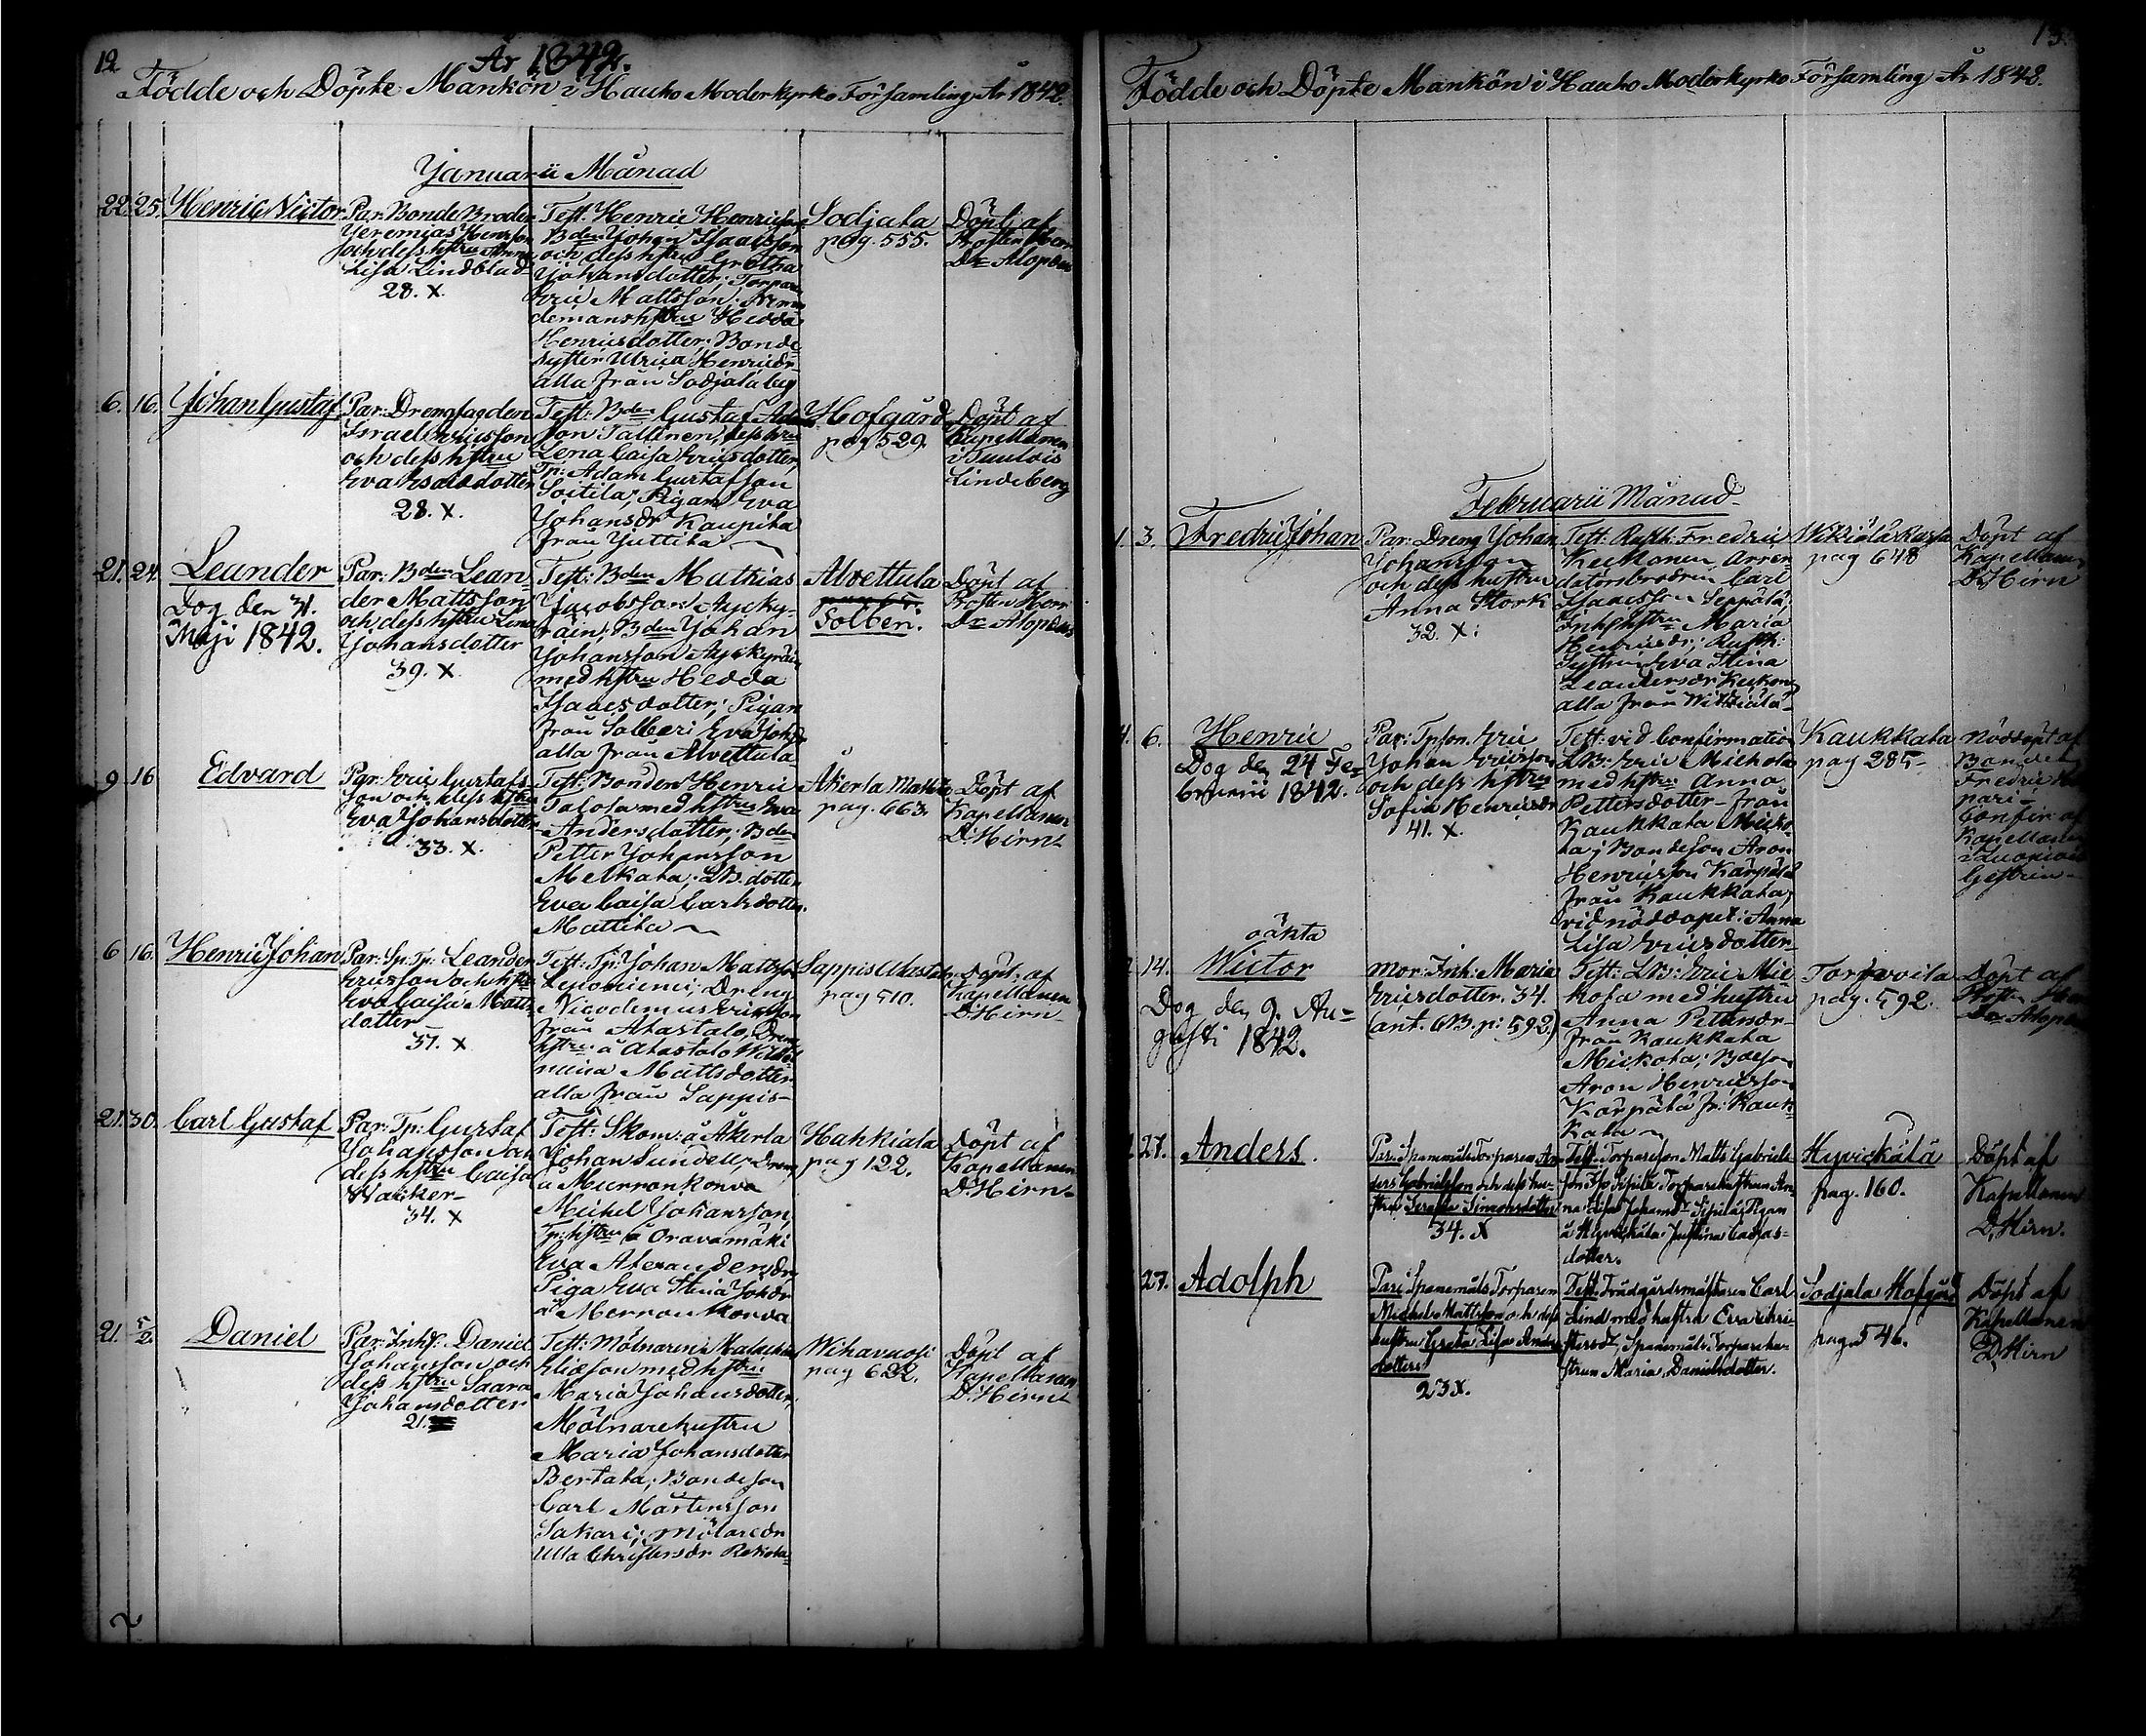 12
År 1842.
Födde och Döpte Mankön i Hauho Moderkyrko Församling År 1842.
Januarii Månad
22. 25. Henric Victor
Par. Bonde Broder
Jeremias Henrics
och dess hstru Anna
Lisa Lindblad
28. X.
Test. Henric Henricsson
Bden Johan Isaacsson
och dess hstru Gretha
Johansdotter; Torpar
Eric Mattsson;
demans hstru Hedda
Henricsdotter; Bonde
syster Ulrica Henricsdr
alla från Sodjala by
Sodjala
pag. 555.
Döpt af
Prosten Herr
Dr Alopæus
6. 16. Johan Gustaf
Par: Dreng
Israel Ericsson
och dess hstru
Eva Isaksdotter
28. X.
Test: Bden Gustaf
son Tallinen, dess hstru
Lena Caisa Ericsdotter,
Tp: Adam Gustafsson
Soitila; Pigan Eva
Johansdr Kaupila
från Juttila
Hofgård
pag 529.
Döpt af
Capellanen
i Tuulois
Lindeberg
21. 24. Leander
Dog den 31.
Maji 1842.
Par: Bden Lean-
der Mattsson
och dess hstru Lena
Johansdotter
39. X.
Test: Bden Mathias
Jacobsson Äyräpy-
räin; Bden Johan
Johansson
med hstru Hedda
Isaacsdotter; Pigan
från Solberi Eva Johsdr
alla från Alvettula
Alvettula
Solberi.
Döpt af
Prosten Herr
Dr Alopæus
9. 16 Edvard
Par. Eric Gustafs-
son och dess hstru
Eva Johansdotter
33. X.
Test: Bonden Henric
Talola med hstru Eva
Andersdotter; Bden
Petter Johansson
Melkala; LB. dotter
Eva Caisa Carlsdotter
Mattila
Åkerla Mattila
pag. 663.
Döpt af
Kapellanen
D. Hirn
6 16. Henric Johan
Par: Sp. Tp: Leander
Ericsson och hstru
Eva Caisa Matts-
dotter
37. X
Test: Tp. Johan Mattsson
Dreng
Nicodemus Ericsson
från Alastalo, Dreng
hstru å Alastalo
mina Mattsdotter
alla från Sappis
Sappis Alastalo
pag 510.
Döpt af
Kapellanen
D. Hirn
21. 30. Carl Gustaf
Par: Tp: Gustaf
Johansson och
dess hstru Caisa
Wacker
34. X
Test: Skom: å Åkerla
Johan Sundell; Dreng
å Murronkonva
Michel Johansson,
Tp: hstru å Oravamäki
Eva Alexandersdr
Piga Eva Stina Johsdr
å Merronkonva
Hahkiala
pag 122.
Döpt af
Kapellanen
D. Hirn
21. 5/2. Daniel
Par: Inhs. Daniel
Johansson och
dess hstru Saara
Johansdotter
21.
Test: Mölnaren Malachias
Eliasson med hstru
Maria Johansdotter,
Mölnare hustru
Maria Johansdotter
Bertala; Bondeson
Carl Mårtensson
Sakari; Mölaredr
Ulla Christersdr Rekola
Wihavuosi
pag 622.
Döpt af
Kapellanen
D. Hirn
2
13.
Födde och Döpte Mankön i Hauho Moderkyrko Församling År 1842.
Februarii Månad
1. 3. Fredric Johan
Par: Dreng Johan
Johansson
och dess hustru
Anna Stork
32. X.
Test: Rusth: Fredric
Keckonen, Arren-
datorsbrodren Carl
Isaacsson Seppälä;
Inhs hstru Maria
Henricsdr; Rusth:
Systren Eva Stina
Leandersdr Keckonen
alla från Wittiälä
pag 648
Döpt af
Kapellanen
D. Hirn
4. 6. Henric
Dog den 24 Fe-
bruarii 1842.
Par: Tpson. Eric
Johan Ericsson
och dess hstru
Sofia Henricsdr
41. X.
Test: vid Confirmation
LB: Eric Michels
med hstru Anna
Pettersdotter från
Kaukkala Micko-
la; Bondeson Aron
Henricsson Kärpälä
från Kaukkala;
vid nöddopet: Anna
Lisa Ericsdotter
Kaukkala
pag 285
Nöddöpt af
Bonden
Fredric
pari
Confir: af
Kapellanen
i Luopiois
Gestrin
14. oäkta
Wictor
Dog den 9. Au-
gusti 1842.
Mor: Inh: Maria
Ericsdotter. 34.
(ant. CB. p: 592.)
Test: LB: Eric Mic-
kola med hustru
Anna Petersdr
från Kaukkala
Mickola; Bdeson
Aron Henricsson
Kärpälä fr: Kauk-
kala
Torvoila
pag. 592.
Döpt af
Prosten Herr
Dr Alopæus
27. Anders.
Par: Spanmåls Torparen An-
ders Gabrielsson och dess hu-
stru Serafia Simonsdotter
34. X
Test: Torparesson Matts Gabriels-
son Sipilä Torparehustrun An-
na Lisa Johansdr Sipilä; Pigan
å Hyvickälä Justina Cajsas-
dotter.
Hyvickälä
pag. 160.
Döpt af
Kapellanen
D. Hirn.
27. Adolph
Par: Spanmåls Torparen
Michel Mattsson och dess
hustru Greta Lisa Anders-
dotter
23 X.
Test: Trädgårdsmästaren Carl
Lind med hustru Eva Chri-
stersdr, Spanmåls Torparehu-
strun Maria Danielsdotter.
Sodjala Hofgård
pag. 546.
Döpt af
Kapellanen
D. Hirn